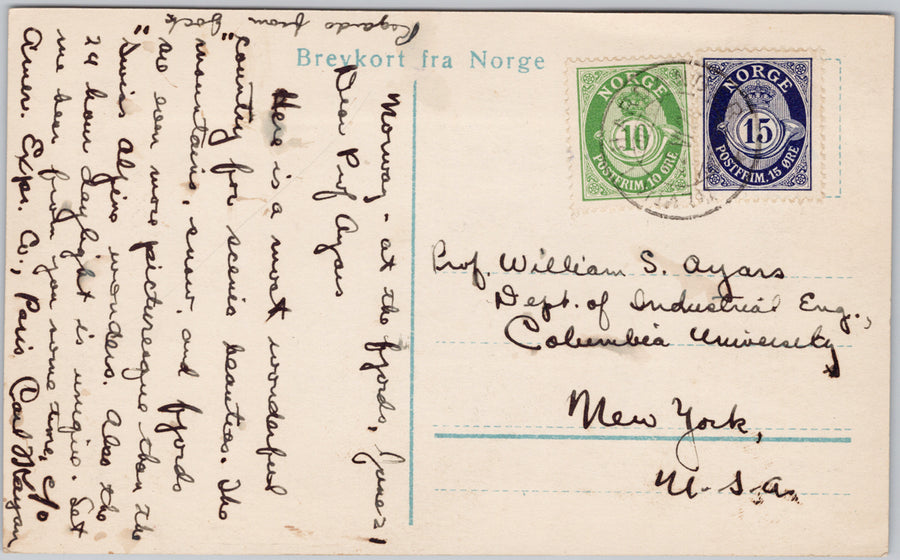 Brevkort fra Norge
NORGE
10
POSTFRIM. 10 ØRE
NORGE
15
POSTFRIM. 15 ØRE
Prof. William S. Ayars
Dept. of Industrial Eng.,
Columbia University
New York,
U.S.A.
Norway - at the fjords, June 21
Dear Prof Ayars
Here is a most wonderful
country for scenic beauties. The
mountains, snow, and fjords
are even more picturesque than the
"Swiss Alpine wonders. Also the
24 hour daylight is unique. Let
me hear from you some time, c/o
Amer. Expr. Co., Paris Carl
Regards from